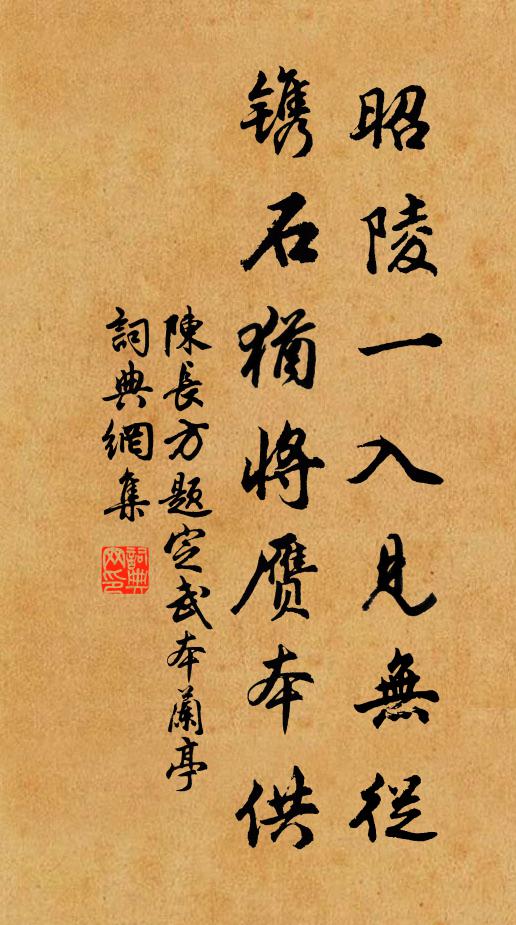 昭陵一入見無從
镌石猶將赝本供
陳長方題定武本蘭亭
詞典網集
詞典網印